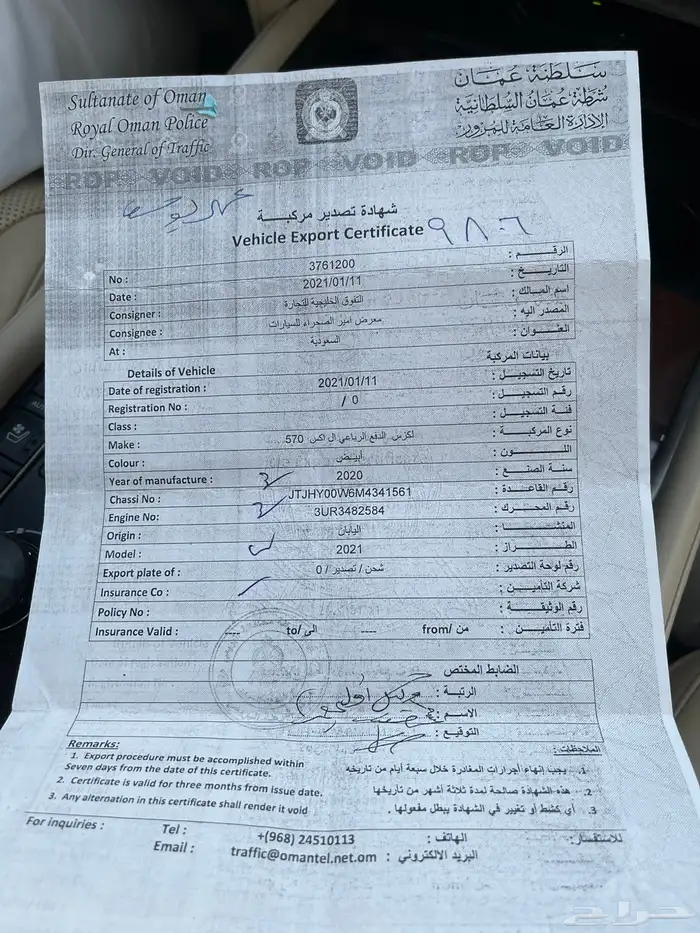 Sultanate of Oman
Royal Oman Police
Dir. General of Traffic
سلطنة عمان
شرطة عمان السلطانية
الإدارة العامة للمرور
ROP VOID ROP VOID ROP VOID
شهادة تصدير مركبة
Vehicle Export Certificate ٩٨٠٦
No : 3761200 الرقم :
Date : 2021/01/11 التاريخ :
Consigner : التفوق الخليجية للتجارة اسم المالك :
Consignee : معرض امير الصحراء للسيارات المصدر اليه :
At : السعودية العنوان :
Details of Vehicle بيانات المركبة
Date of registration : 2021/01/11 تاريخ التسجيل :
Registration No : / 0 رقم التسجيل :
Class : فئة التسجيل :
Make : لكزس الدفع الرباعي ال اكس 570 نوع المركبة :
Colour : أبيض اللون :
Year of manufacture : 2020 سنة الصنع :
Chassi No : JTJHY00W6M4341561 رقم القاعدة :
Engine No: 3UR3482584 رقم المحرك :
Origin : اليابان المنشأ :
Model : 2021 الطراز :
Export plate of : شحن / تصدير / 0 رقم لوحة التصدير :
Insurance Co : شركة التأمين :
Policy No : رقم الوثيقة :
Insurance Valid : ---- to/ الى ---- from/ من فترة التأمين :
الضابط المختص
الرتبة :
الاسم :
التوقيع :
Remarks:
1. Export procedure must be accomplished within
Seven days from the date of this certificate.
2. Certificate is valid for three months from issue date.
3. Any alternation in this certificate shall render it void
الملاحظات:
1. يجب إنهاء أجرارات المغادرة خلال سبعة أيام من تاريخه
2. هذه الشهادة صالحة لمدة ثلاثة أشهر من تاريخها
3. أي كشط أو تغيير في الشهادة يبطل مفعولها .
For inquiries : للاستفسار:
Tel : +(968) 24510113 الهاتف :
Email : traffic@omantel.net.om البريد الالكتروني :
حراج